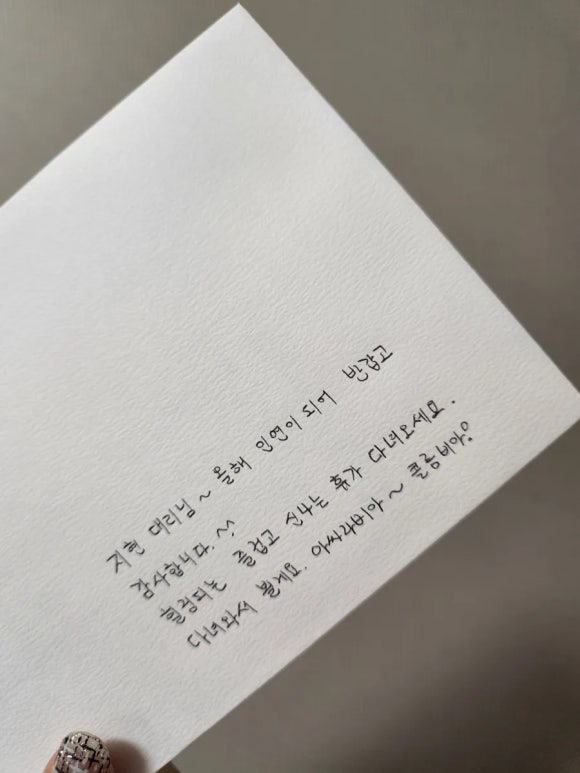 지현 대리님 ~ 올해 인연이 되어 반갑고
감사합니다. ^^
힐링되는 즐겁고 신나는 휴가 다녀오세요.
다녀와서 뵐게요. 아싸라비아 ~ 콜롬비아!